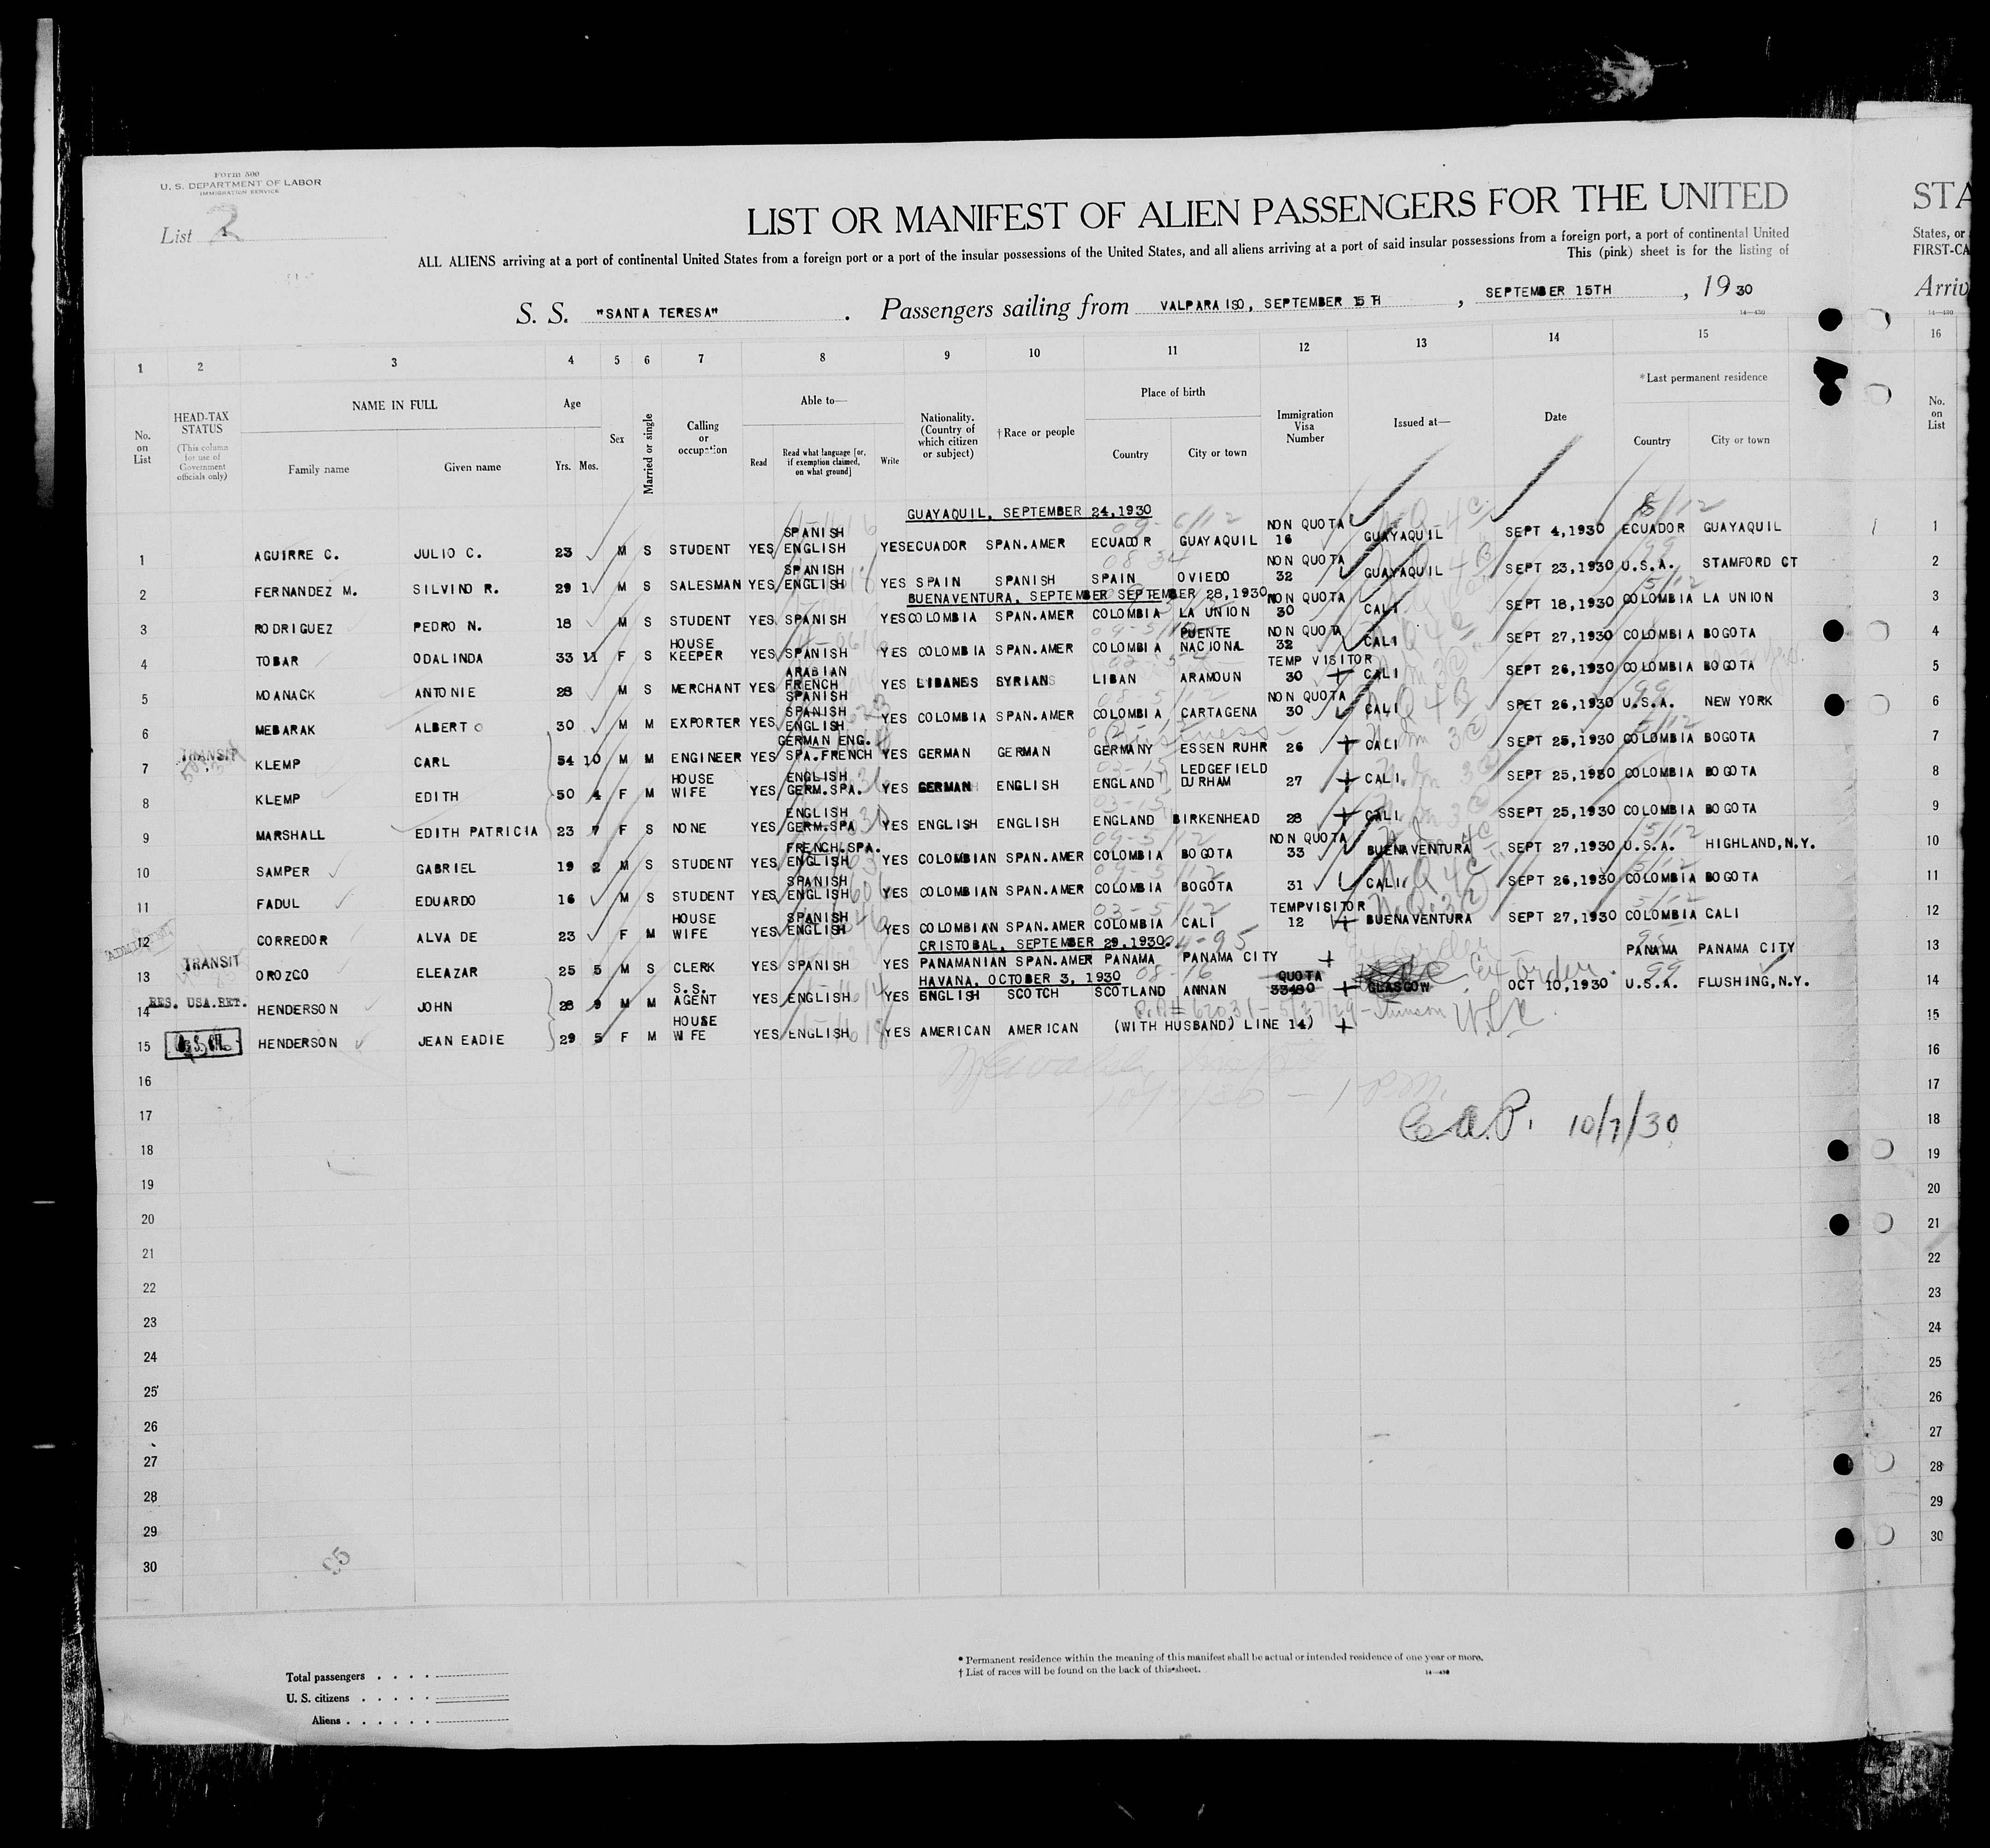 Form 500
U. S. DEPARTMENT OF LABOR
IMMIGRATION SERVICE
List 2
LIST OR MANIFEST OF ALIEN PASSENGERS FOR THE UNITED
STA
ALL ALIENS arriving at a port of continental United States from a foreign port or a port of the insular possessions of the United States, and all aliens arriving at a port of said insular possessions from a foreign port, a port of continental United
States, or
This (pink) sheet is for the listing of
FIRST-CA
S. S. "SANTA TERESA" . Passengers sailing from VALPARAISO, SEPTEMBER 15TH , SEPTEMBER 15TH , 1930
Arriv
14—430
1 2 3 4 5 6 7 8 9 10 11 12 13 14 15 16
No. on List
HEAD-TAX STATUS
(This column for use of Government officials only)
NAME IN FULL
Family name
Given name
Age
Yrs. Mos.
Sex
Married or single
Calling or occupation
Able to—
Read
Read what language [or, if exemption claimed, on what ground]
Write
Nationality. (Country of which citizen or subject)
†Race or people
Place of birth
Country
City or town
Immigration Visa Number
Issued at—
Date
*Last permanent residence
Country
City or town
No. on List
GUAYAQUIL, SEPTEMBER 24,1930
1 AGUIRRE C. JULIO C. 23 M S STUDENT YES SPANISH ENGLISH YES ECUADOR SPAN.AMER ECUADOR GUAYAQUIL NON QUOTA 16 GUAYAQUIL SEPT 4,1930 ECUADOR GUAYAQUIL 1
2 FERNANDEZ M. SILVINO R. 29 1 M S SALESMAN YES SPANISH ENGLISH YES SPAIN SPANISH SPAIN OVIEDO NON QUOTA 32 GUAYAQUIL SEPT 23,1930 U.S.A. STAMFORD CT 2
BUENAVENTURA, SEPTEMBER SEPTEMBER 28,1930
3 RODRIGUEZ PEDRO N. 18 M S STUDENT YES SPANISH YES COLOMBIA SPAN.AMER COLOMBIA LA UNION NON QUOTA 30 CALI SEPT 18,1930 COLOMBIA LA UNION 3
4 TOBAR ODALINDA 33 11 F S HOUSE KEEPER YES SPANISH YES COLOMBIA SPAN.AMER COLOMBIA PUENTE NACIONAL NON QUOTA 32 CALI SEPT 27,1930 COLOMBIA BOGOTA 4
5 MOANACK ANTONIE 28 M S MERCHANT YES ARABIAN FRENCH SPANISH YES LIBANES SYRIAN LIBAN ARAMOUN TEMP VISITOR 30 CALI SEPT 26,1930 COLOMBIA BOGOTA 5
6 MEBARAK ALBERTO 30 M M EXPORTER YES SPANISH ENGLISH YES COLOMBIA SPAN.AMER COLOMBIA CARTAGENA NON QUOTA 30 CALI SPET 26,1930 U.S.A. NEW YORK 6
7 TRANSIT KLEMP CARL 54 10 M M ENGINEER YES GERMAN ENG. SPA.FRENCH YES GERMAN GERMAN GERMANY ESSEN RUHR 26 CALI SEPT 25,1930 COLOMBIA BOGOTA 7
8 KLEMP EDITH 50 4 F M HOUSE WIFE YES ENGLISH GERM.SPA. YES GERMAN ENGLISH ENGLAND LEDGEFIELD DURHAM 27 CALI SEPT 25,1930 COLOMBIA BOGOTA 8
9 MARSHALL EDITH PATRICIA 23 7 F S NONE YES ENGLISH GERM.SPA YES ENGLISH ENGLISH ENGLAND BIRKENHEAD 28 CALI SSEPT 25,1930 COLOMBIA BOGOTA 9
10 SAMPER GABRIEL 19 2 M S STUDENT YES FRENCH.SPA. ENGLISH YES COLOMBIAN SPAN.AMER COLOMBIA BOGOTA NON QUOTA 33 BUENAVENTURA SEPT 27,1930 U.S.A. HIGHLAND,N.Y. 10
11 FADUL EDUARDO 16 M S STUDENT YES SPANISH ENGLISH YES COLOMBIAN SPAN.AMER COLOMBIA BOGOTA 31 CALI SEPT 26,1930 COLOMBIA BOGOTA 11
12 ADMITTED CORREDOR ALVA DE 23 F M HOUSE WIFE YES SPANISH ENGLISH YES COLOMBIAN SPAN.AMER COLOMBIA CALI TEMPVISITOR 12 BUENAVENTURA SEPT 27,1930 COLOMBIA CALI 12
CRISTOBAL, SEPTEMBER 29,1930.
13 TRANSIT OROZCO ELEAZAR 25 5 M S CLERK YES SPANISH YES PANAMANIAN SPAN.AMER PANAMA PANAMA CITY PANAMA PANAMA CITY 13
HAVANA, OCTOBER 3, 1930
14 RES. USA.RET. HENDERSON JOHN 28 9 M M S.S. AGENT YES ENGLISH YES ENGLISH SCOTCH SCOTLAND ANNAN QUOTA 33480 GLASGOW OCT 10,1930 U.S.A. FLUSHING,N.Y. 14
15 HENDERSON JEAN EADIE 29 5 F M HOUSE WIFE YES ENGLISH YES AMERICAN AMERICAN (WITH HUSBAND) LINE 14) 15
16 16
17 17
C.A.P. 10/7/30
18 18
19 19
20 20
21 21
22 22
23 23
24 24
25 25
26 26
27 27
28 28
29 29
30 30
Total passengers . . . .
U. S. citizens . . . . .
Aliens . . . . . .
* Permanent residence within the meaning of this manifest shall be actual or intended residence of one year or more.
† List of races will be found on the back of this sheet.
14—430